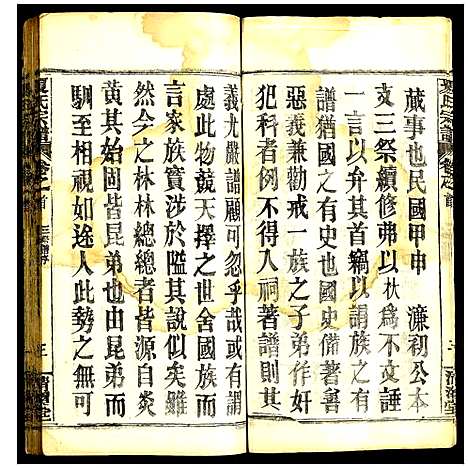 夏氏宗譜 卷之首
蕆事也民國甲申 濂初公本
支三祭續修弗以杕為不文諈
一言以弁其首竊以謂族之有
譜猶國之有史也國史備著善
惡義兼勸戒一族之子弟苟有
犯科者例不得入祠著譜則其
義尤嚴譜顧可忽乎哉或有謂
處此物競天擇之世舍國族而
言家族實涉於隘其說似矣雖
然今之林林總總者皆源自炎
黃其始固皆昆弟也由昆弟而
馴至相視如途人此勢之無可
夏氏宗譜 卷之首